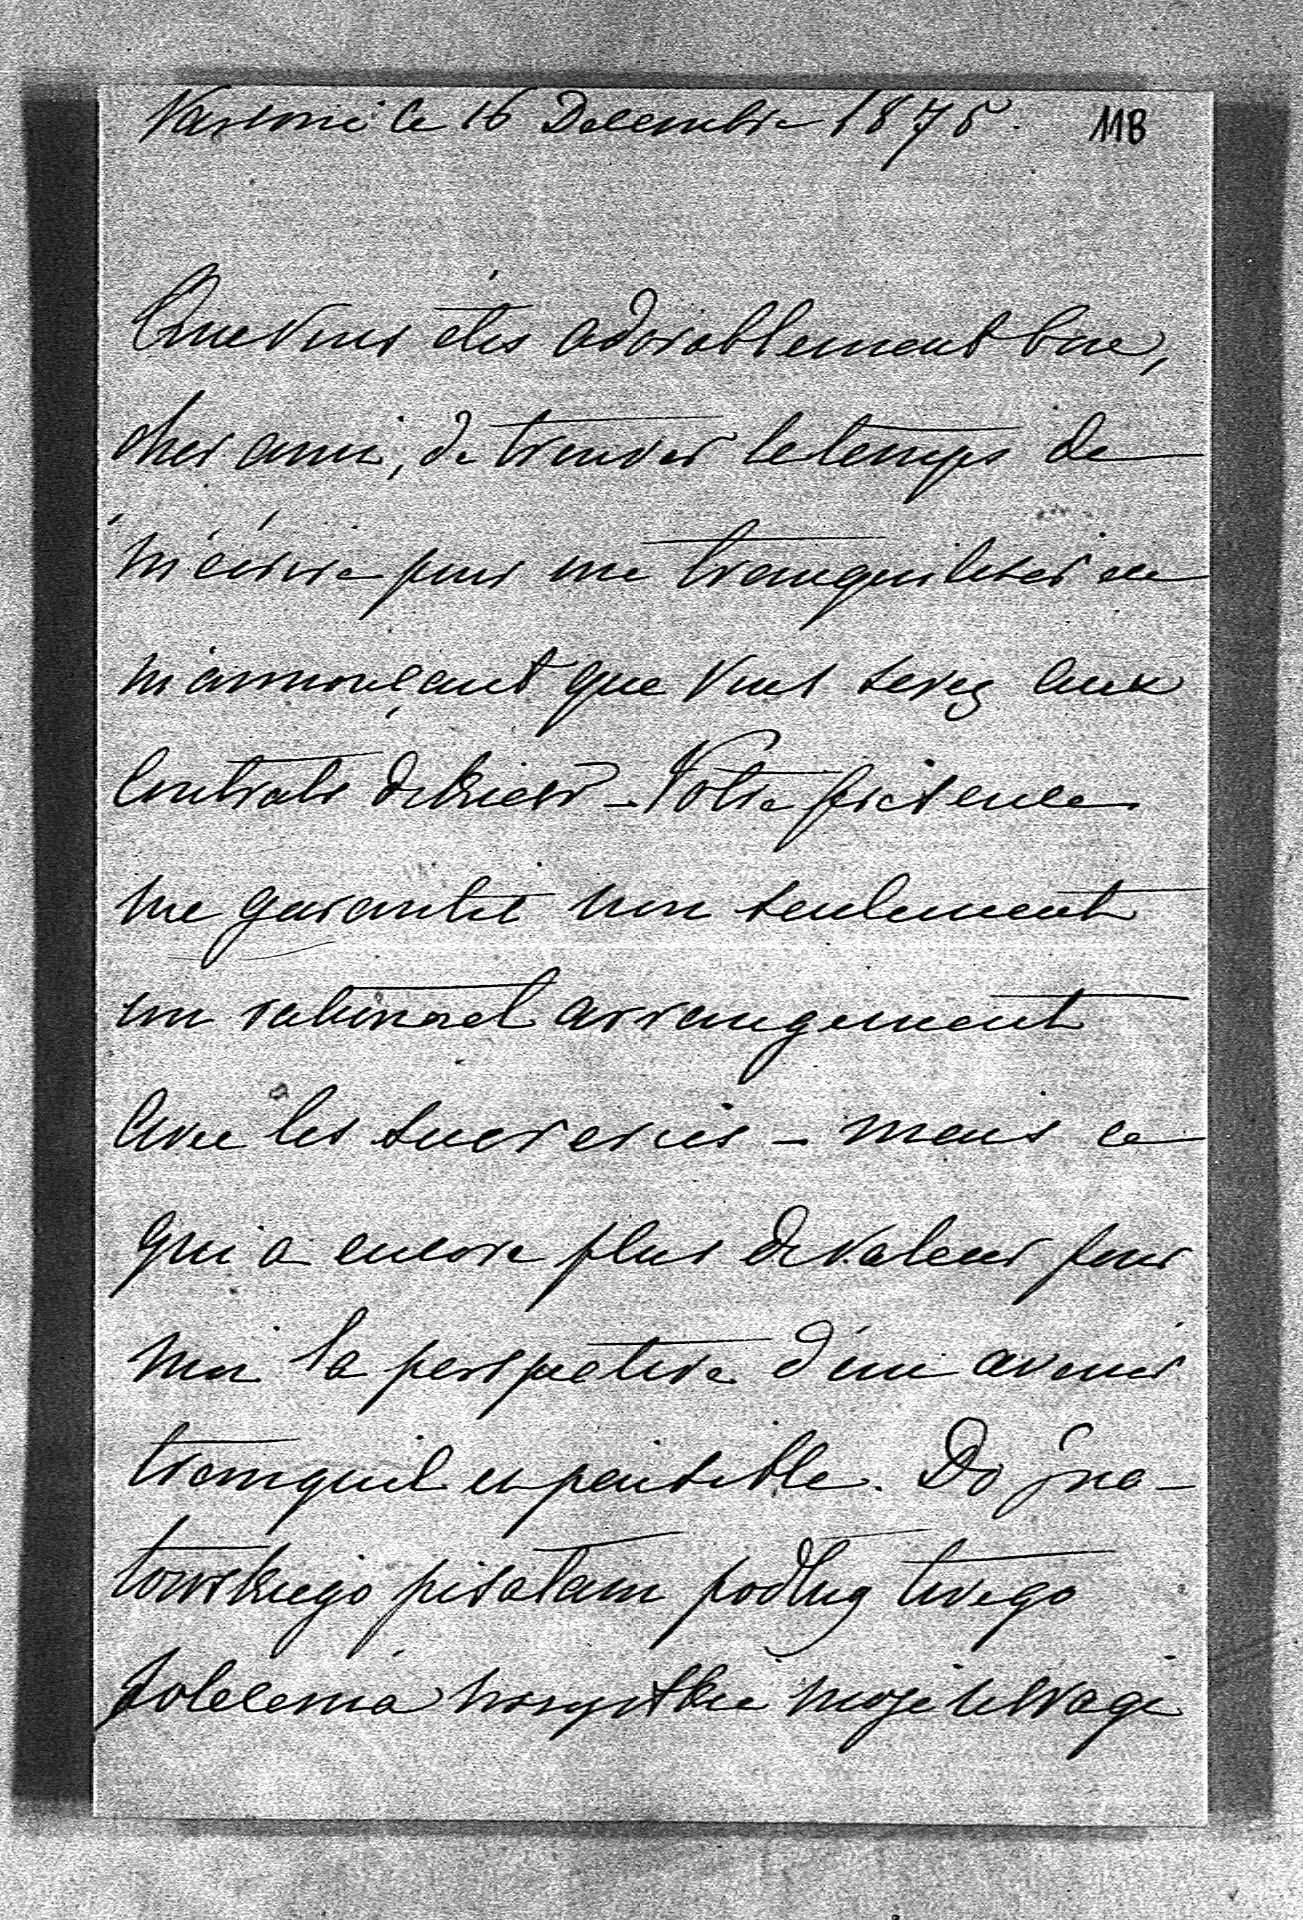 le 16 Decembre 1875. 118
Que vous êtes adorablement bon,
cher ami, de trouver le temps de
m'écrire pour me tranquiliser en
m'annonçant que vous serez aux
Contrats de Kieow – Votre présence
me garantit non seulement
un rationnel arrangement
avec les sucreries – mais ce
qui a encore plus de valeur pour
moi la perspective d'un avenir
tranquil et paisible. Do Igna-
towskiego pisałam podług twego
polecenia wszystkie moje uwagi